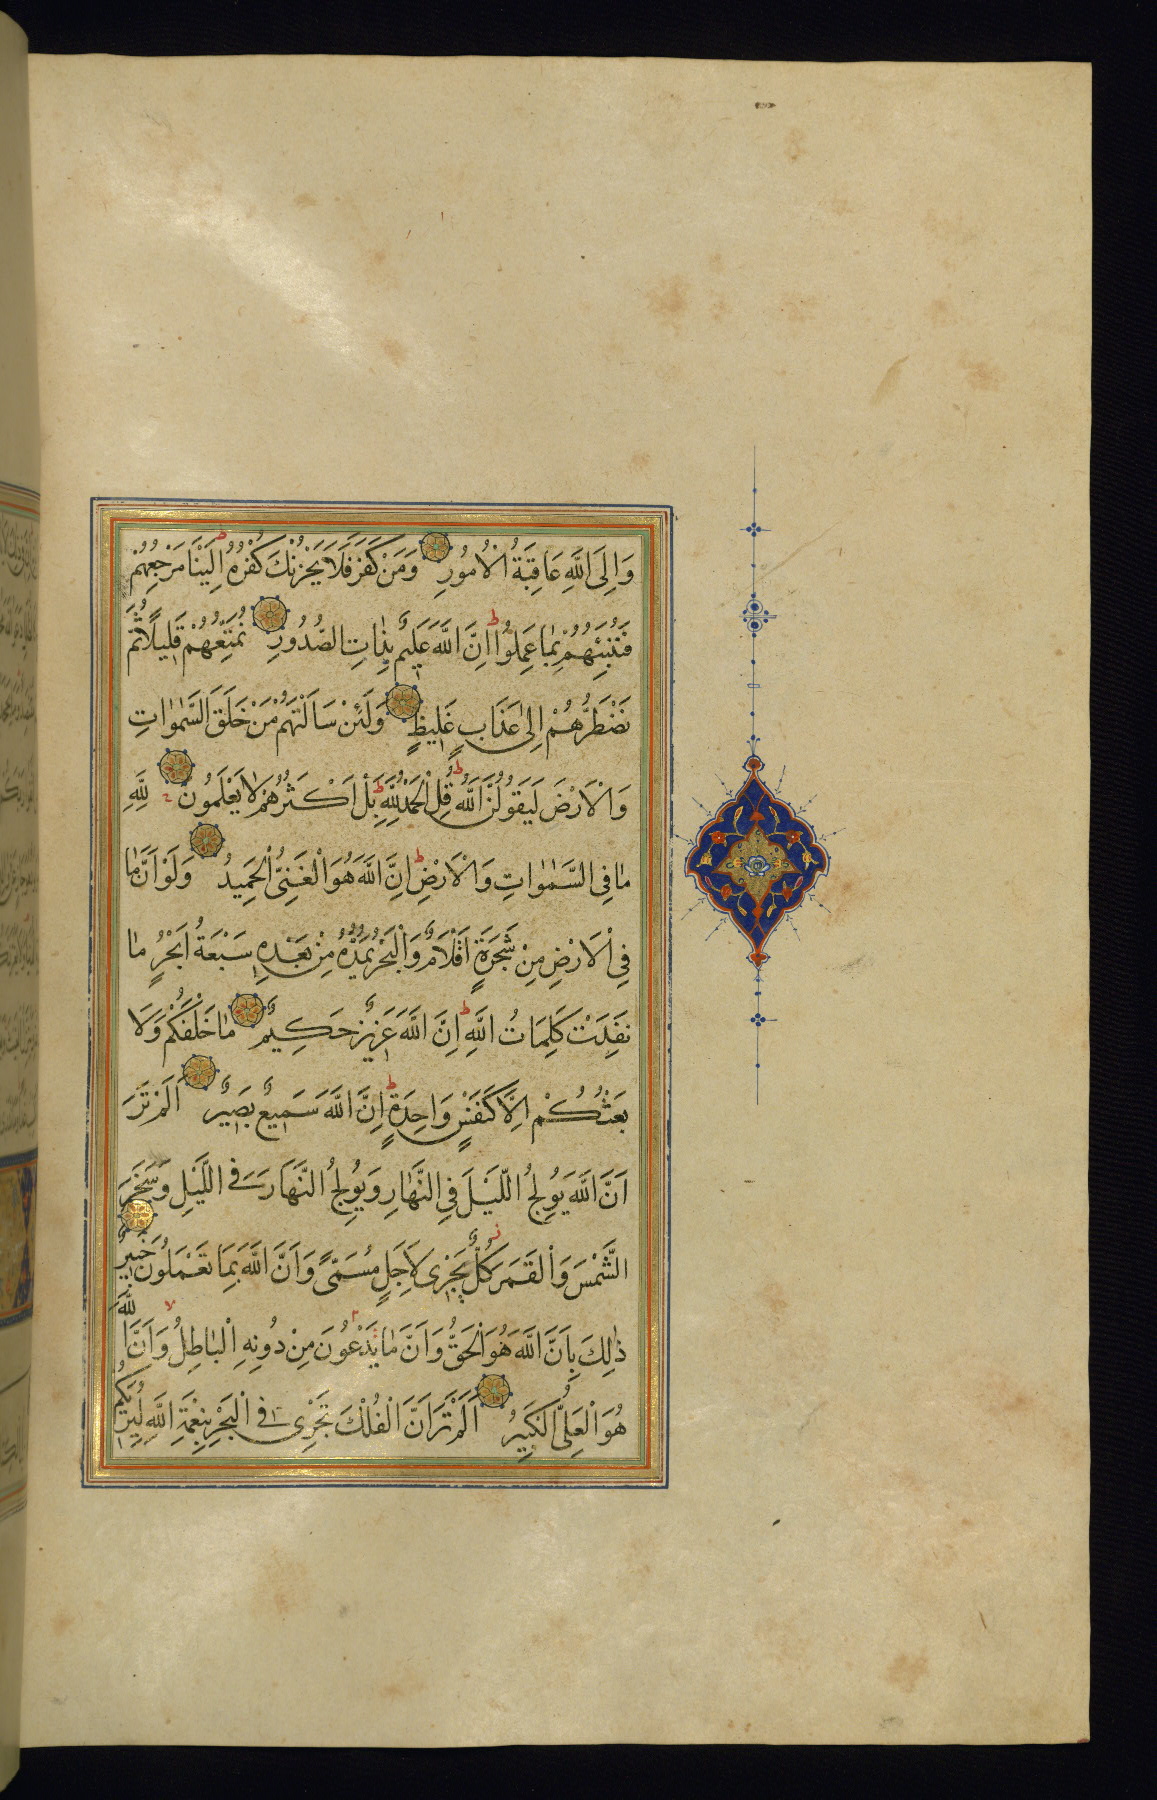 وَاِلَى اللّٰهِ عَاقِبَةُ الْاُمُورِ وَمَنْ كَفَرَ فَلَا يَحْزُنْكَ كُفْرُهُ اِلَيْنَا مَرْجِعُهُمْ
فَنُنَبِّئُهُمْ بِمَا عَمِلُوا اِنَّ اللّٰهَ عَلِيمٌ بِذَاتِ الصُّدُورِ نُمَتِّعُهُمْ قَلِيلًا ثُمَّ
نَضْطَرُّهُمْ اِلٰى عَذَابٍ غَلِيظٍ وَلَئِنْ سَاَلْتَهُمْ مَنْ خَلَقَ السَّمٰوَاتِ
وَالْاَرْضَ لَيَقُولُنَّ اللّٰهُ قُلِ الْحَمْدُ لِلّٰهِ بَلْ اَكْثَرُهُمْ لَا يَعْلَمُونَ لِلّٰهِ
مَا فِى السَّمٰوَاتِ وَالْاَرْضِ اِنَّ اللّٰهَ هُوَ الْغَنِىُّ الْحَمِيدُ وَلَوْ اَنَّ مَا
فِى الْاَرْضِ مِنْ شَجَرَةٍ اَقْلَامٌ وَالْبَحْرُ يَمُدُّهُ مِنْ بَعْدِهِ سَبْعَةُ اَبْحُرٍ مَا
نَفِدَتْ كَلِمَاتُ اللّٰهِ اِنَّ اللّٰهَ عَزِيزٌ حَكِيمٌ مَا خَلْقُكُمْ وَلَا
بَعْثُكُمْ اِلَّا كَنَفْسٍ وَاحِدَةٍ اِنَّ اللّٰهَ سَمِيعٌ بَصِيرٌ اَلَمْ تَرَ
اَنَّ اللّٰهَ يُولِجُ اللَّيْلَ فِى النَّهَارِ وَيُولِجُ النَّهَارَ فِى اللَّيْلِ وَسَخَّرَ
الشَّمْسَ وَالْقَمَرَ كُلٌّ يَجْرِى لِاَجَلٍ مُسَمًّى وَاَنَّ اللّٰهَ بِمَا تَعْمَلُونَ خَبِيرٌ
ذٰلِكَ بِاَنَّ اللّٰهَ هُوَ الْحَقُّ وَاَنَّ مَا يَدْعُونَ مِنْ دُونِهِ الْبَاطِلُ وَاَنَّ اللّٰهَ
هُوَ الْعَلِىُّ الْكَبِيرُ اَلَمْ تَرَ اَنَّ الْفُلْكَ تَجْرِى فِى الْبَحْرِ بِنِعْمَةِ اللّٰهِ لِيُرِيَكُمْ